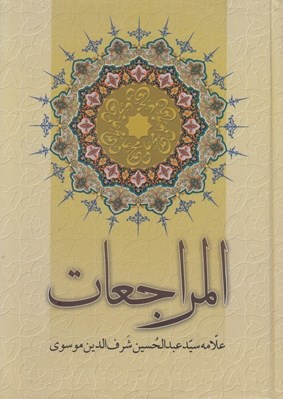 المراجعات
علّامه سیّد عبدالحُسین شَرف‌الدین موسوی